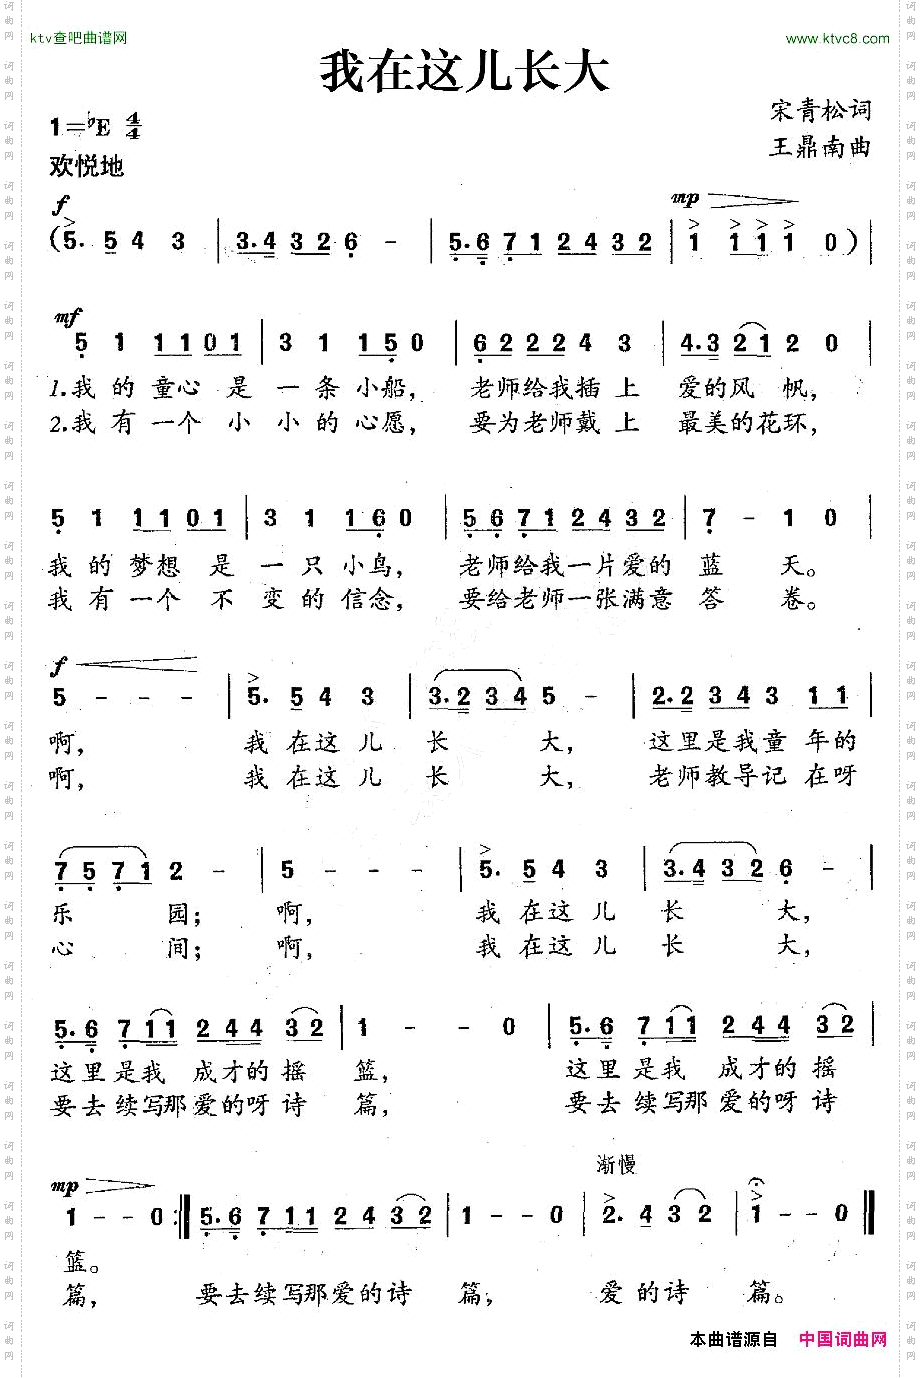 ktv查吧曲谱网
www.ktvc8.com
我在这儿长大
1=♭E 4/4
宋青松词
欢悦地
王鼎南曲
f mp
(5. 5 4 3 | 3.4 3 2 6 - | 5.6 7 1 2 4 3 2 | 1 1 1 1 0) |
mf
5 1 1 1 0 1 | 3 1 1 5 0 | 6 2 2 2 4 3 | 4.3 2 1 2 0 |
1.我的童心是一条小船，老师给我插上爱的风帆，
2.我有一个小小的心愿，要为老师戴上最美的花环，
5 1 1 1 0 1 | 3 1 1 6 0 | 5 6 7 1 2 4 3 2 | 7 - 1 0 |
我的梦想是一只小鸟，老师给我一片爱的蓝天。
我有一个不变的信念，要给老师一张满意答卷。
f
5 - - - | 5. 5 4 3 | 3.2 3 4 5 - | 2.2 3 4 3 1 1 |
啊，我在这儿长大，这里是我童年的
啊，我在这儿长大，老师教导记在呀
7 5 7 1 2 - | 5 - - - | 5. 5 4 3 | 3.4 3 2 6 - |
乐园；啊，我在这儿长大，
心间；啊，我在这儿长大，
5.6 7 1 1 2 4 4 3 2 | 1 - - 0 | 5.6 7 1 1 2 4 4 3 2 |
这里是我成才的摇篮，这里是我成才的摇
要去续写那爱的呀诗篇，要去续写那爱的呀诗
mp 渐慢
1 - - 0 :‖ 5.6 7 1 1 2 4 4 3 2 | 1 - - 0 | 2. 4 3 2 | 1 - - 0 ‖
篮。
篇，要去续写那爱的诗篇，爱的诗篇。
本曲谱源自 中国词曲网